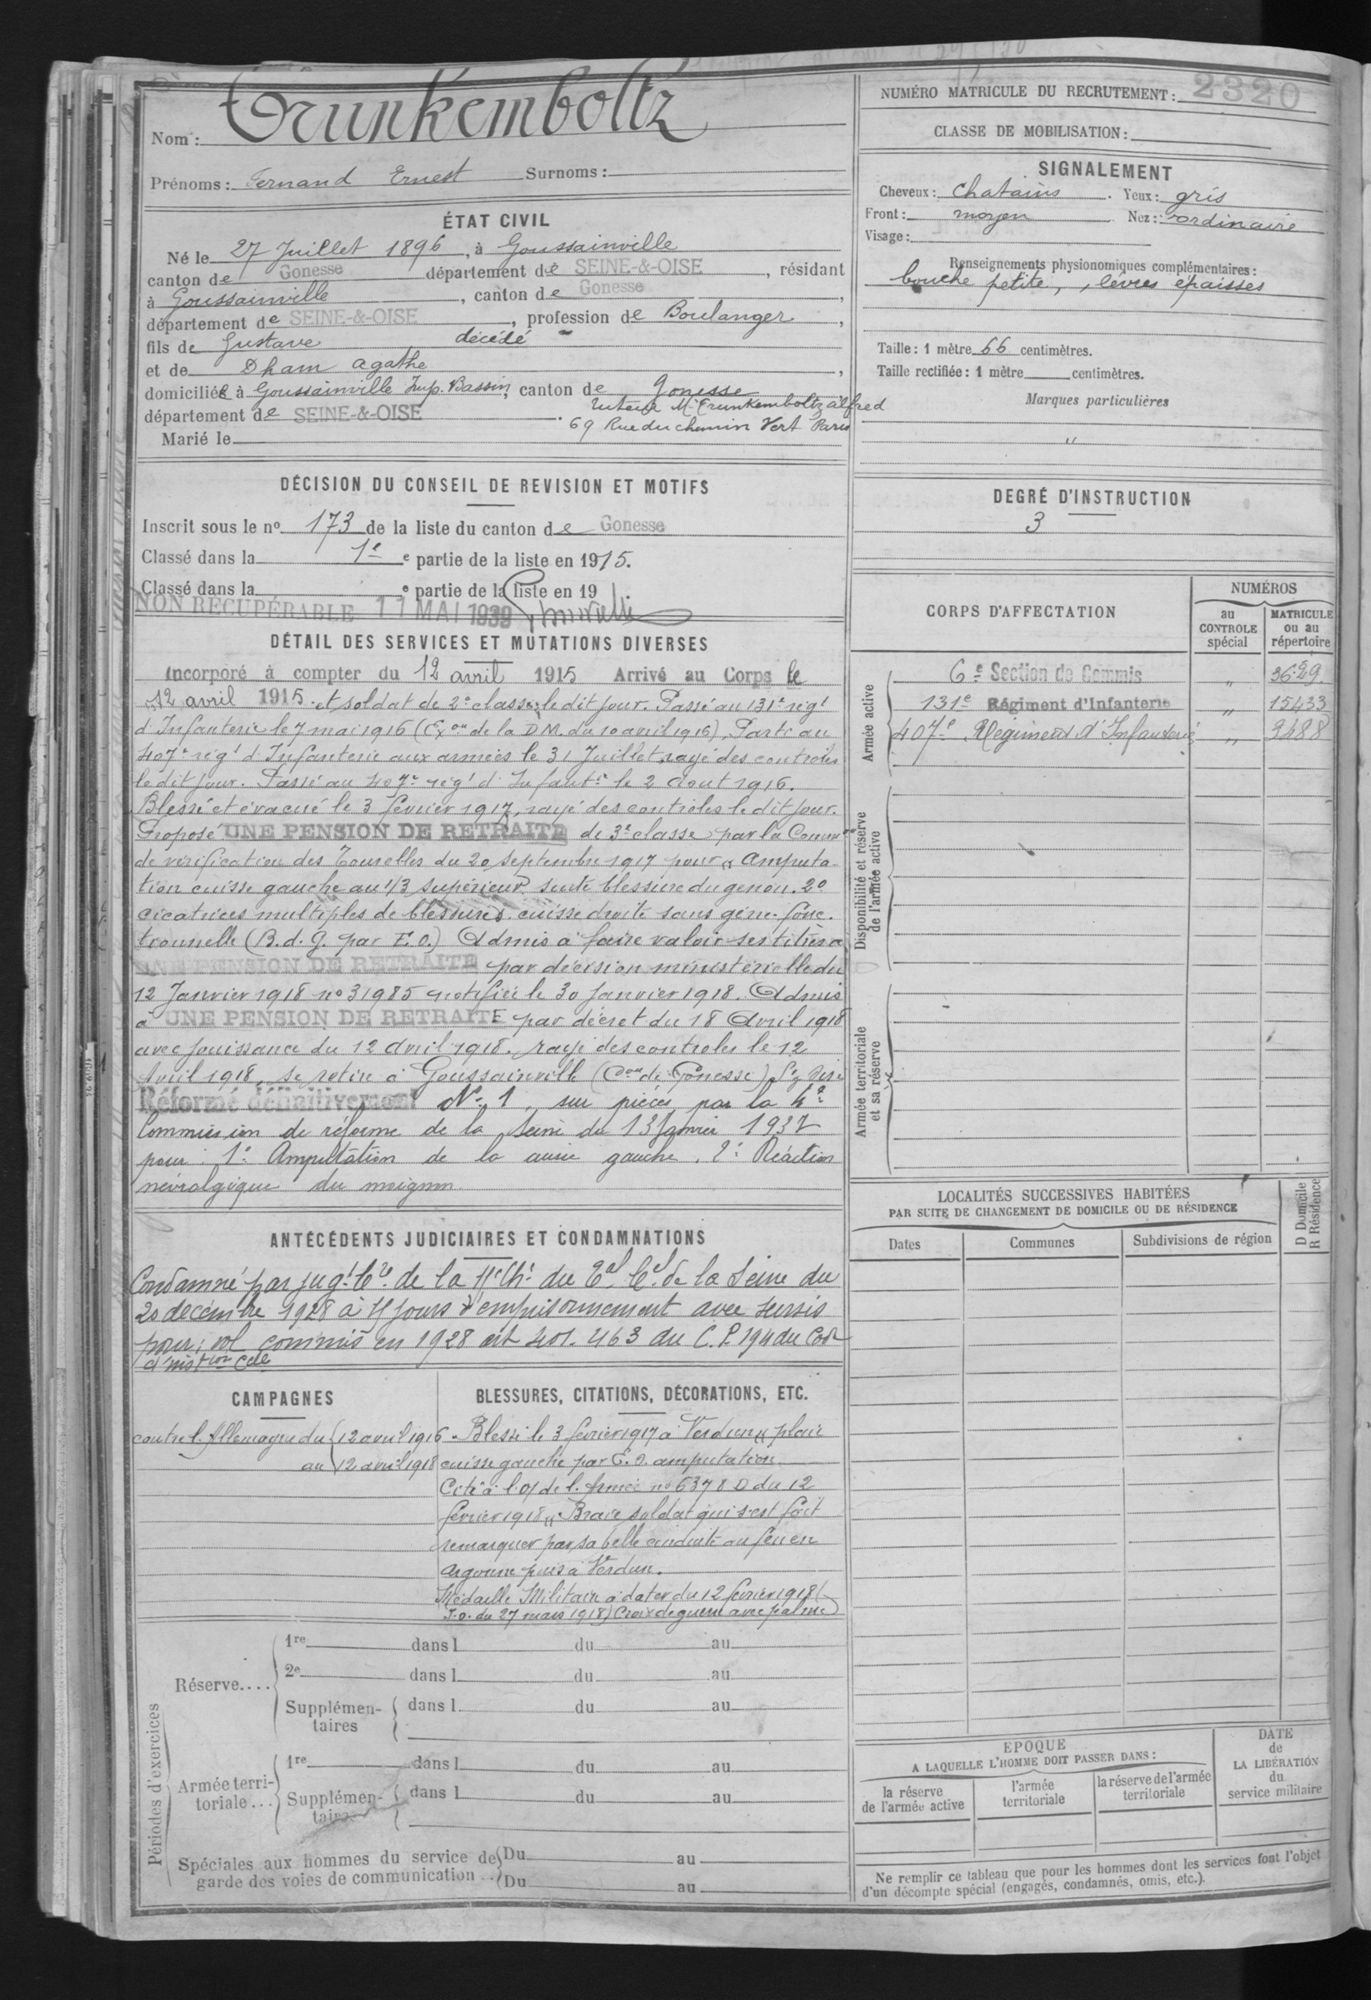 Nom : Trunkemboltz
Prénoms : Fernand Ernest Surnoms :
ÉTAT CIVIL
Né le 27 Juillet 1896, à Goussainville
canton de Gonesse département de SEINE-&-OISE, résidant
à Goussainville, canton de Gonesse,
département de SEINE-&-OISE, profession de Boulanger,
fils de Gustave décédé
et de Dham Agathe,
domiciliée à Goussainville Imp. Bassin, canton de Gonesse
département de SEINE-&-OISE. Tuteur Mr Trunkemboltz Alfred
69 Rue du chemin Vert Paris
Marié le
DÉCISION DU CONSEIL DE REVISION ET MOTIFS
Inscrit sous le no 173 de la liste du canton de Gonesse
Classé dans la 1e e partie de la liste en 1915.
Classé dans la e partie de la liste en 19
NON RECUPÉRABLE 11 MAI 1939
DÉTAIL DES SERVICES ET MUTATIONS DIVERSES
Incorporé à compter du 12 avril 1915 Arrivé au Corps le
12 avril 1915 et soldat de 2e classe le dit jour. Passé au 131e régt
d'Infanterie le 7 mai 1916 (Exon de la D.M. du 10 avril 1916). Parti au
407e régt d'Infanterie aux armées le 31 Juillet, rayé des contrôles
le dit jour. Passé au 407e régt d'Infantie le 2 Aout 1916.
Blessé et évacué le 3 février 1917, rayé des contrôles le dit jour.
Proposé UNE PENSION DE RETRAITE de 3e classe par la Common
de vérification des Tourelles du 20 septembre 1917 pour Amputa
tion cuisse gauche au 1/3 supérieur suite blessure du genou. 2o
cicatrices multiples de blessures cuisse droite sans gêne fonc
tionnelle (B.d.G. par E.O.) Admis à faire valoir ses titres à
UNE PENSION DE RETRAITE par décision ministérielle du
12 Janvier 1918 no 31985 notifiée le 30 Janvier 1918. Admis
à UNE PENSION DE RETRAITE par décret du 18 Avril 1918
avec jouissance du 12 Avril 1918. rayé des controles le 12
Avril 1918, se retire à Goussainville (Con de Gonesse)
Réformé définitivement No 1, sur pièces par la 4e
Commission de réforme de la Seine du 13 Janvier 1937
pour 1o Amputation de la cuisse gauche. 2o Réaction
névralgique du moignon.
ANTÉCÉDENTS JUDICIAIRES ET CONDAMNATIONS
Condamné par jugt Cre de la 11e Ch. du Tal Cel de la Seine du
20 décembre 1928 à 4 jours d'emprisonnement avec sursis
pour vol commis en 1928 art 401. 463 du C.P. 194 du Code
d'instion Celle
CAMPAGNES
contre l'Allemagne du 12 avril 1916
au 12 avril 1918
BLESSURES, CITATIONS, DÉCORATIONS, ETC.
Blessé le 3 février 1917 à Verdun " plaie
cuisse gauche par E.O. amputation.
Cité à l'O/ de l'Armée no 6378 D du 12
février 1918 " Brave soldat qui s'est fait
remarquer par sa belle conduite au feu en
Argonne puis à Verdun.
Médaille Militaire à dater du 12 février 1918 (
J.O. du 27 mars 1918) Croix de guerre avec palme
Périodes d'exercices
Réserve.... 1re dans l du au
2e dans l du au
Supplémen-taires dans l du au
Armée terri-toriale... 1re dans l du au
Supplémen-taires dans l du au
Spéciales aux hommes du service de garde des voies de communication .. Du au
Du au
NUMÉRO MATRICULE DU RECRUTEMENT : 2320
CLASSE DE MOBILISATION :
SIGNALEMENT
Cheveux : chatains. Yeux : gris
Front : moyen Nez : ordinaire
Visage :
Renseignements physionomiques complémentaires :
bouche petite, lèvres épaisses
Taille : 1 mètre 66 centimètres.
Taille rectifiée : 1 mètre centimètres.
Marques particulières
"
DEGRÉ D'INSTRUCTION
3
CORPS D'AFFECTATION
NUMÉROS
au CONTROLE spécial
MATRICULE ou au répertoire
Armée active
6e Section de Commis " 3629
131e Régiment d'Infanterie " 15433
407e Régiment d'Infanterie " 9488
Disponibilité et réserve de l'armée active
Armée territoriale et sa réserve
LOCALITÉS SUCCESSIVES HABITÉES
PAR SUITE DE CHANGEMENT DE DOMICILE OU DE RÉSIDENCE
D Domicile
R Résidence
Dates Communes Subdivisions de région
ÉPOQUE
A LAQUELLE L'HOMME DOIT PASSER DANS :
la réserve de l'armée active
l'armée territoriale
la réserve de l'armée territoriale
DATE
de
LA LIBÉRATION
du
service militaire
Ne remplir ce tableau que pour les hommes dont les services font l'objet
d'un décompte spécial (engagés, condamnés, omis, etc.).